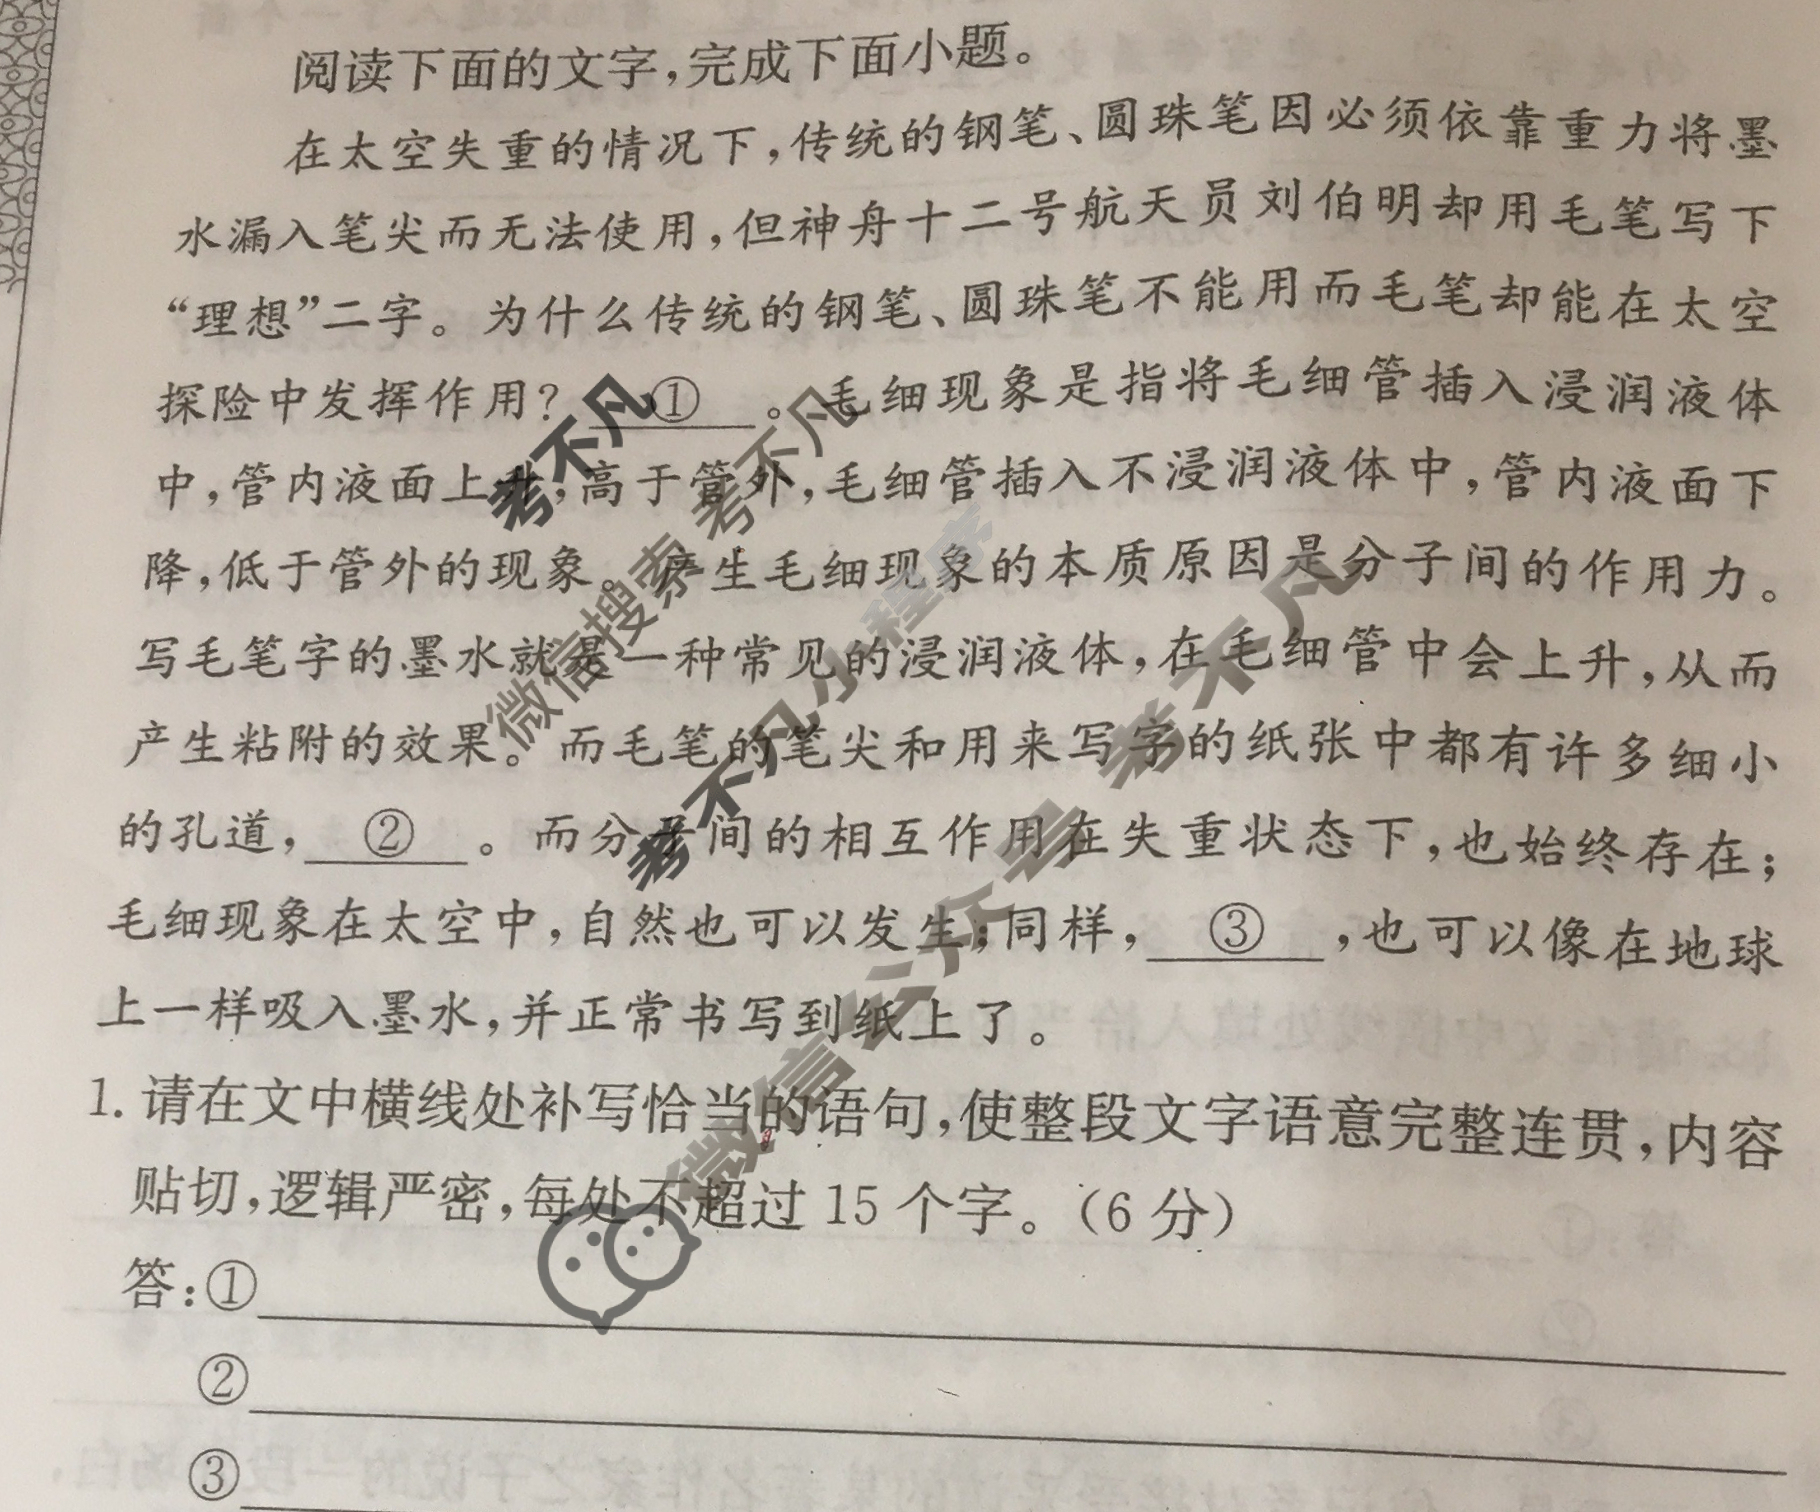 阅读下面的文字,完成下面小题。
在太空失重的情况下,传统的钢笔、圆珠笔因必须依靠重力将墨
水漏入笔尖而无法使用,但神舟十二号航天员刘伯明却用毛笔写下
“理想”二字。为什么传统的钢笔、圆珠笔不能用而毛笔却能在太空
探险中发挥作用? ① 。毛细现象是指将毛细管插入浸润液体
中,管内液面上升,高于管外,毛细管插入不浸润液体中,管内液面下
降,低于管外的现象。产生毛细现象的本质原因是分子间的作用力。
写毛笔字的墨水就是一种常见的浸润液体,在毛细管中会上升,从而
产生粘附的效果。而毛笔的笔尖和用来写字的纸张中都有许多细小
的孔道, ② 。而分子间的相互作用在失重状态下,也始终存在;
毛细现象在太空中,自然也可以发生;同样, ③ ,也可以像在地球
上一样吸入墨水,并正常书写到纸上了。
1. 请在文中横线处补写恰当的语句,使整段文字语意完整连贯,内容
贴切,逻辑严密,每处不超过 15 个字。(6 分)
答:①
②
③
考不凡
微信搜索 考不凡
考不凡小程序
微信公众号 考不凡